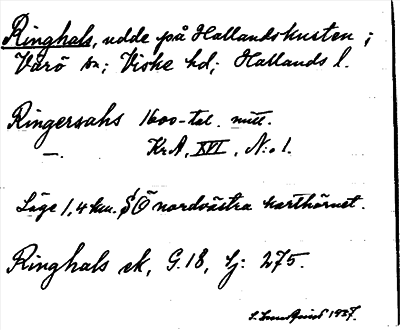 Ringhals, udde på Hallandskusten i
Värö sn; Viske hd; Hallands l.
Ringersahs 1600-tal. mitt.
—. KrA, XVI, N:o 1.
Läge 1,4 km. SÖ nordvästra karthörnet.
Ringhals ek, G.18, Lj: 275.
S. Lundquist 1927.